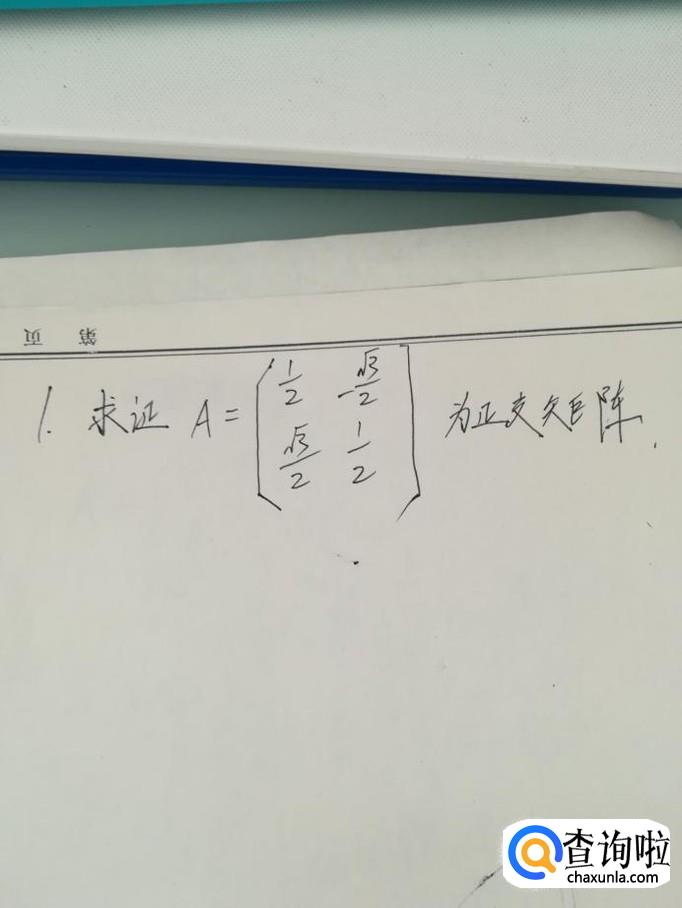 第 页
1. 求证 A = ( 1/2 -√3/2 √3/2 1/2 ) 为正交矩阵.
查询啦
chaxunla.com